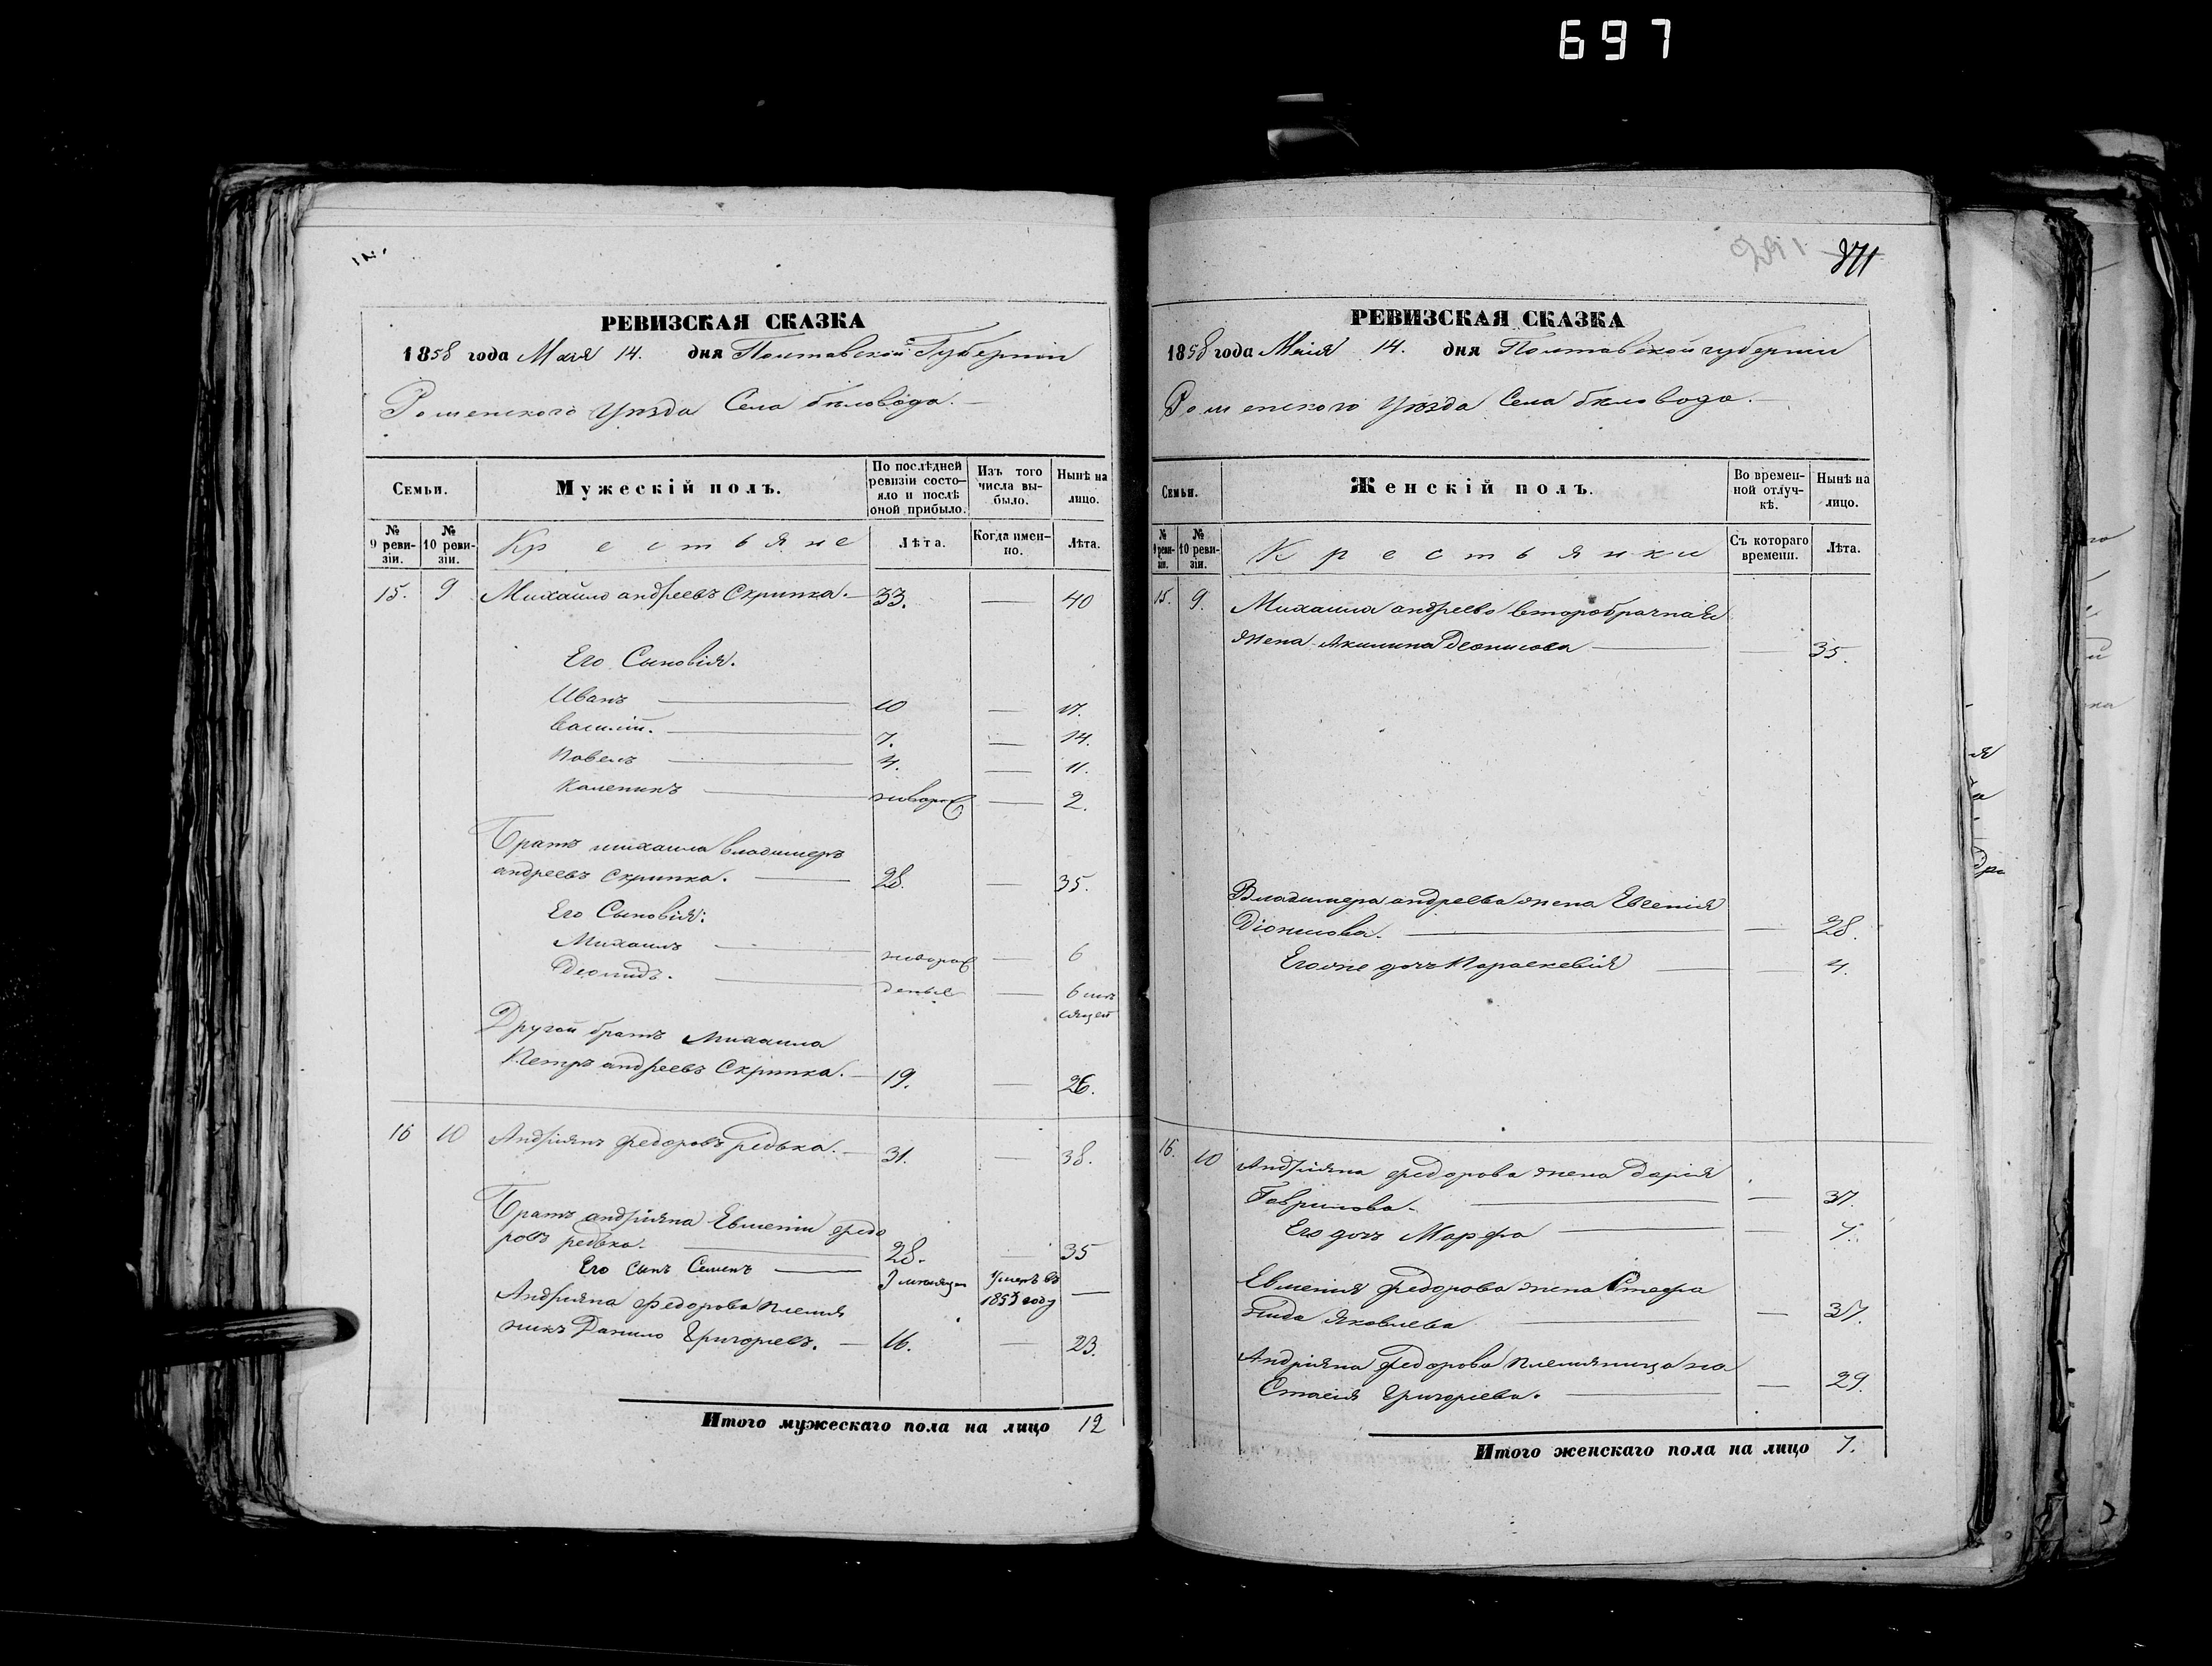 697
291 871
РЕВИЗСКАЯ СКАЗКА
1858 года Мая 14. дня Полтавской Губернiи
Роменского Уѣзда Села бѣловода.
Семьи.
Мужескiй полъ.
По послѣдней ревизiи состо-
яло и послѣ
оной прибыло.
Изъ того
числа вы-
было.
Нынѣ на
лицо.
№
9 реви-
зiи.
№
10 реви-
зiи.
Крестьяне
Лѣта.
Когда имен-
но.
Лѣта.
15. 9 Михайло андреевъ Скрипка. 33. — 40
Его Сыновiя.
Иванъ 10 — 17.
Василiй. 7. — 14.
Павелъ 4. — 11.
Каленикъ новорож — 2.
Братъ михаила владимеръ
андреевъ Скрипка. 28. — 35.
Его Сыновiя:
Михаилъ новорож — 6
Леонидъ. — 6 мѣ
сяцей
Другой братъ Михаила
Петръ андреевъ Скрипка. 19. — 26.
16 10 Андрiянъ федоровъ редька. 31. — 38.
Братъ андрiяна Евменiй федо
ровъ редька. 28. — 35
Его сынъ Семенъ умеръ въ —
1853 году
Андрiяна федорова племян
никъ Данило Григорьевъ. 16. — 23.
Итого мужескаго пола на лицо 12
РЕВИЗСКАЯ СКАЗКА
1858 года Маiя 14. дня Полтавской губернiи
Роменского Уѣзда Села бѣловода.
Семьи.
Женскiй полъ.
Во времен-
ной отлуч-
кѣ.
Нынѣ на
лицо.
№
9 реви-
зiи.
№
10 реви-
зiи.
Крестьянки
Съ котораго
времени.
Лѣта.
15. 9. Михаила андреева второбрачная
жена Акилина Деонисова — 35.
Владимера андреева жена Евгенiя
Дiонисова. — 28.
Его же дочь Параскевiя — 4.
16. 10 Андрiяна федорова жена дарiя
Гаврилова. — 37.
Его дочь Марфа — 7.
Евменiя федорова жена Стефа
нида Яковлева — 37.
Андрiяна федорова племянница на
стасiя Григорiева. — 29.
Итого женскаго пола на лицо 7.